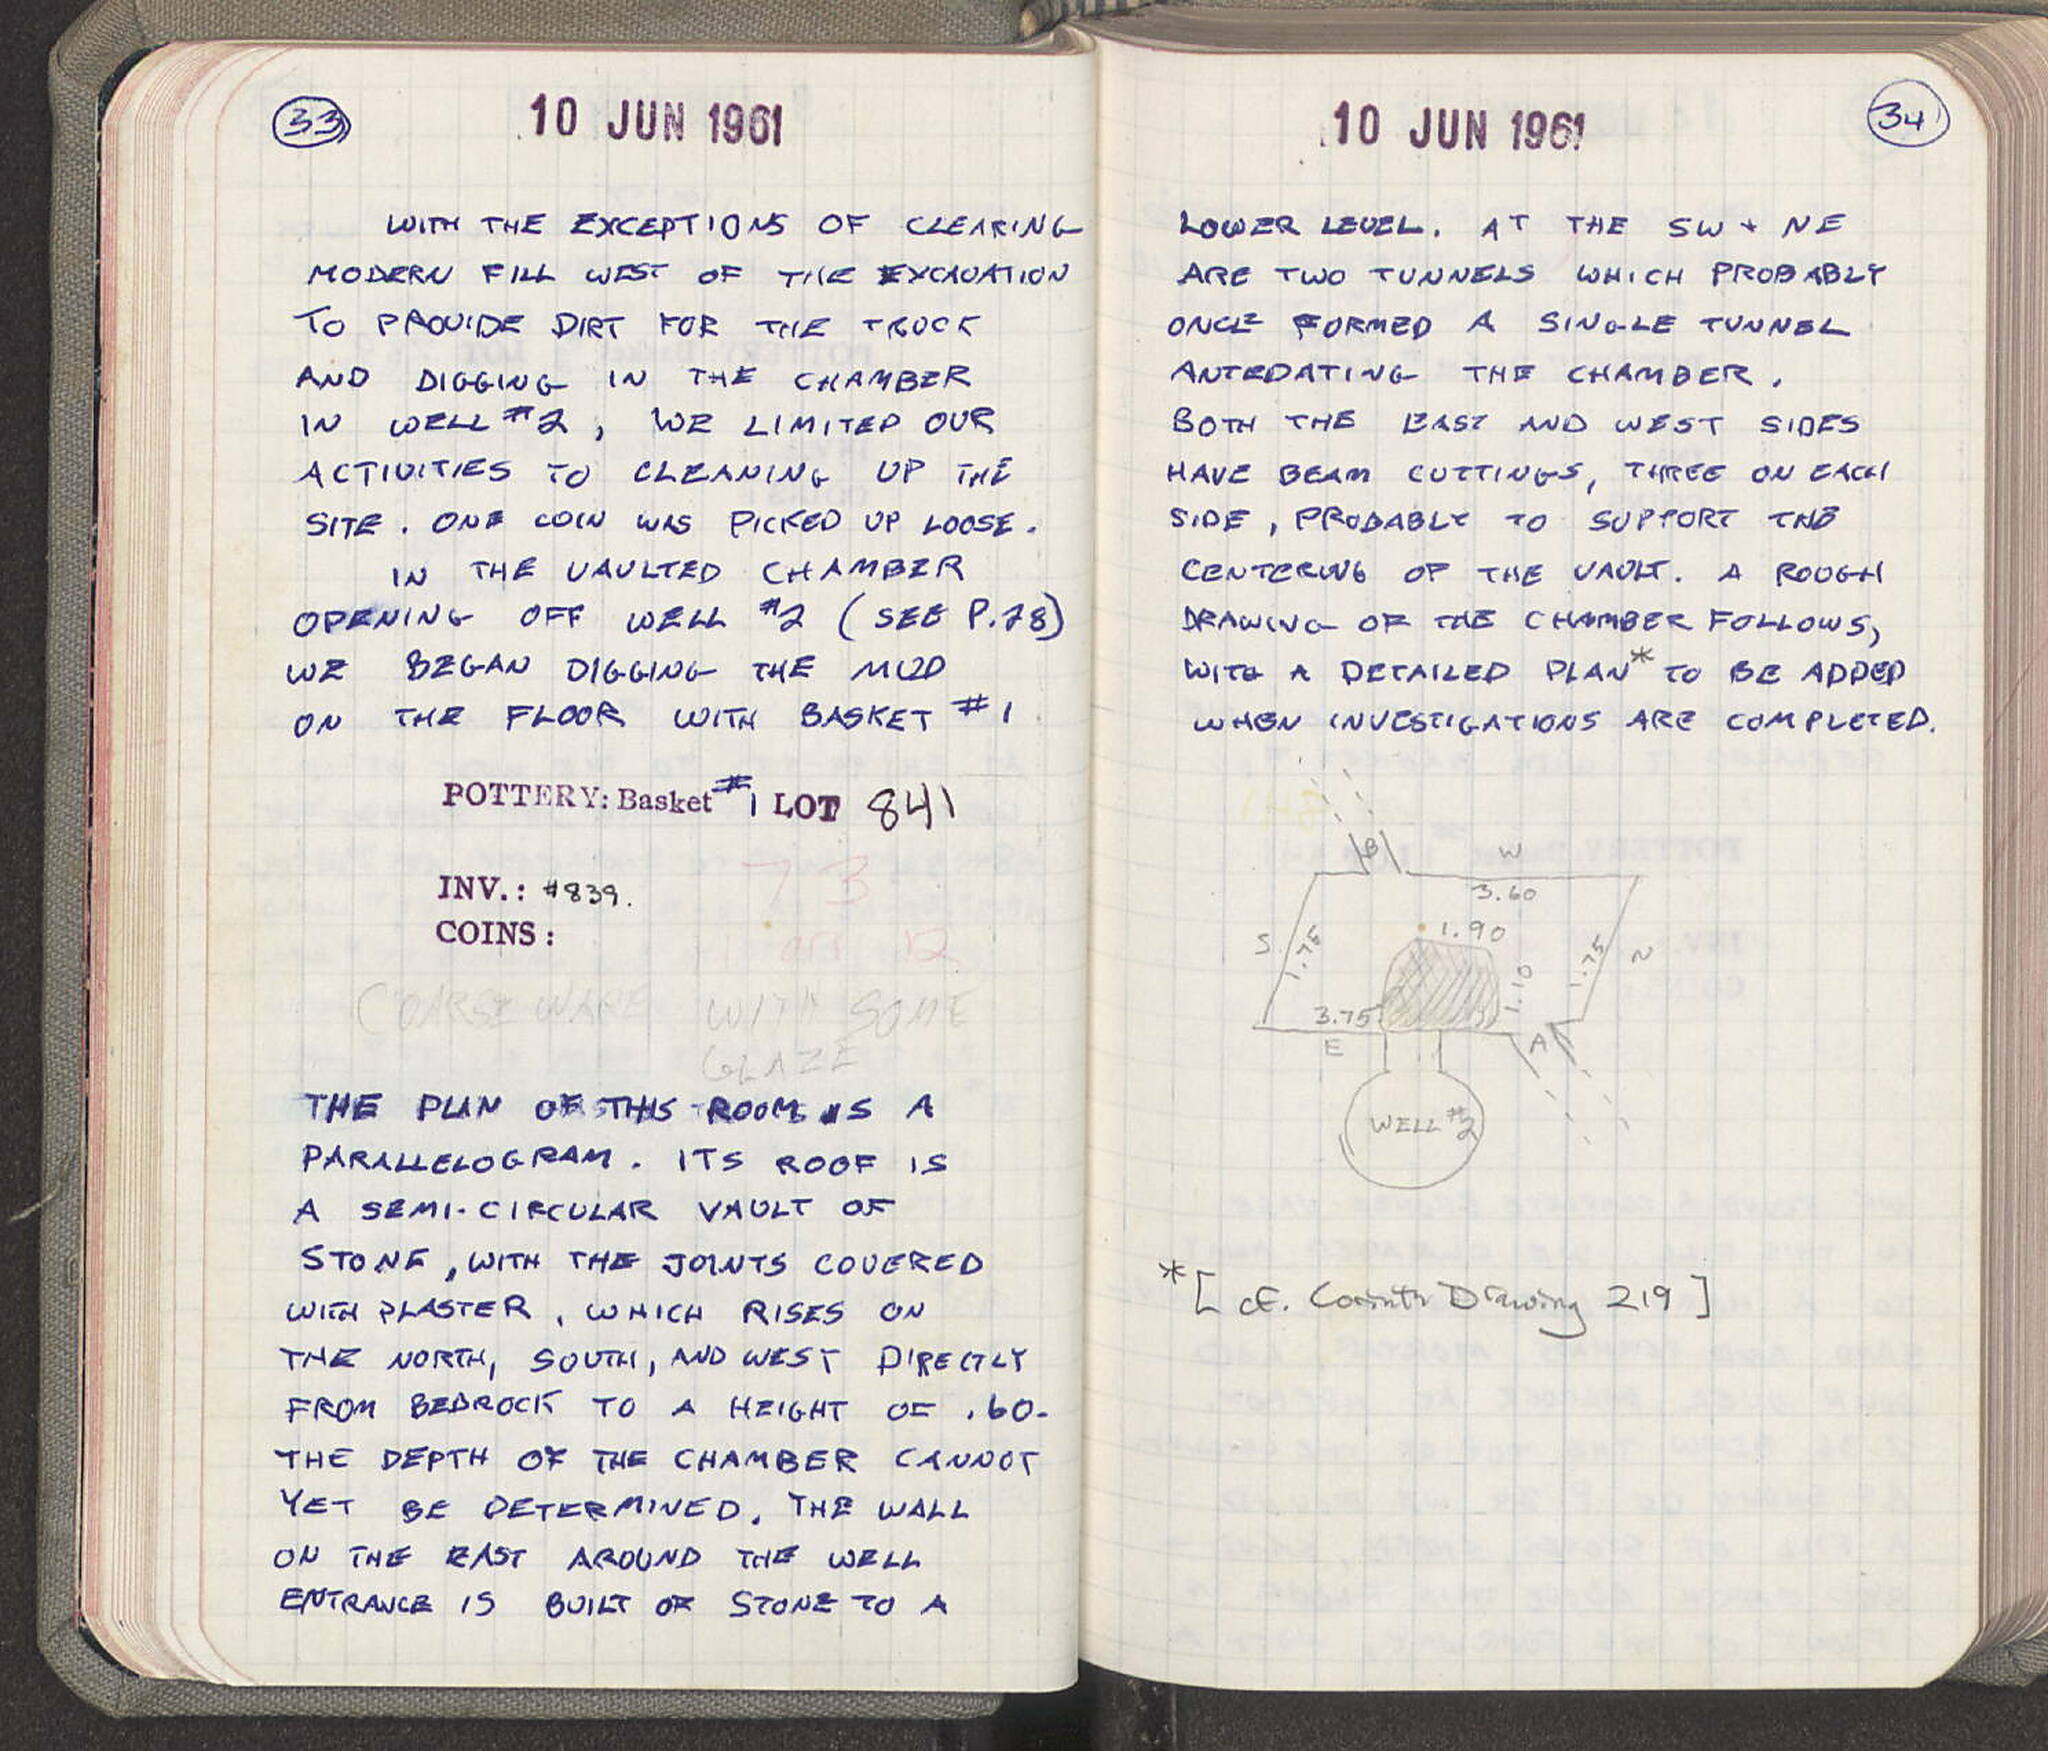 33
10 JUN 1961
WITH THE EXCEPTIONS OF CLEARING
MODERN FILL WEST OF THE EXCAVATION
TO PROVIDE DIRT FOR THE TRUCK
AND DIGGING IN THE CHAMBER
IN WELL #2, WE LIMITED OUR
ACTIVITIES TO CLEANING UP THE
SITE. ONE COIN WAS PICKED UP LOOSE.
IN THE VAULTED CHAMBER
OPENING OFF WELL #2 (SEE P. 28)
WE BEGAN DIGGING THE MUD
ON THE FLOOR WITH BASKET #1
POTTERY: Basket #1 LOT 841
73
INV.: #839.
COINS:
12
COARSE WARE WITH SOME
GLAZE
THE PLAN OF THIS ROOM IS A
PARALLELOGRAM. ITS ROOF IS
A SEMI-CIRCULAR VAULT OF
STONE, WITH THE JOINTS COVERED
WITH PLASTER, WHICH RISES ON
THE NORTH, SOUTH, AND WEST DIRECTLY
FROM BEDROCK TO A HEIGHT OF .60.
THE DEPTH OF THE CHAMBER CANNOT
YET BE DETERMINED. THE WALL
ON THE EAST AROUND THE WELL
ENTRANCE IS BUILT OF STONE TO A
10 JUN 1961
34
LOWER LEVEL. AT THE SW + NE
ARE TWO TUNNELS WHICH PROBABLY
ONCE FORMED A SINGLE TUNNEL
ANTEDATING THE CHAMBER.
BOTH THE EAST AND WEST SIDES
HAVE BEAM CUTTINGS, THREE ON EACH
SIDE, PROBABLY TO SUPPORT THE
CENTERING OF THE VAULT. A ROUGH
DRAWING OF THE CHAMBER FOLLOWS,
WITH A DETAILED PLAN* TO BE ADDED
WHEN INVESTIGATIONS ARE COMPLETED.
B
W
3.60
1.90
S
1.75
1.10
1.75
N
3.75
E
A
WELL #2
*[cf. Corinth Drawing 219]